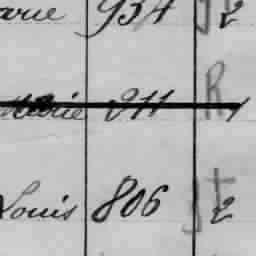 arie 934 J 2
Marie 211 R
Louis 806 J t 2